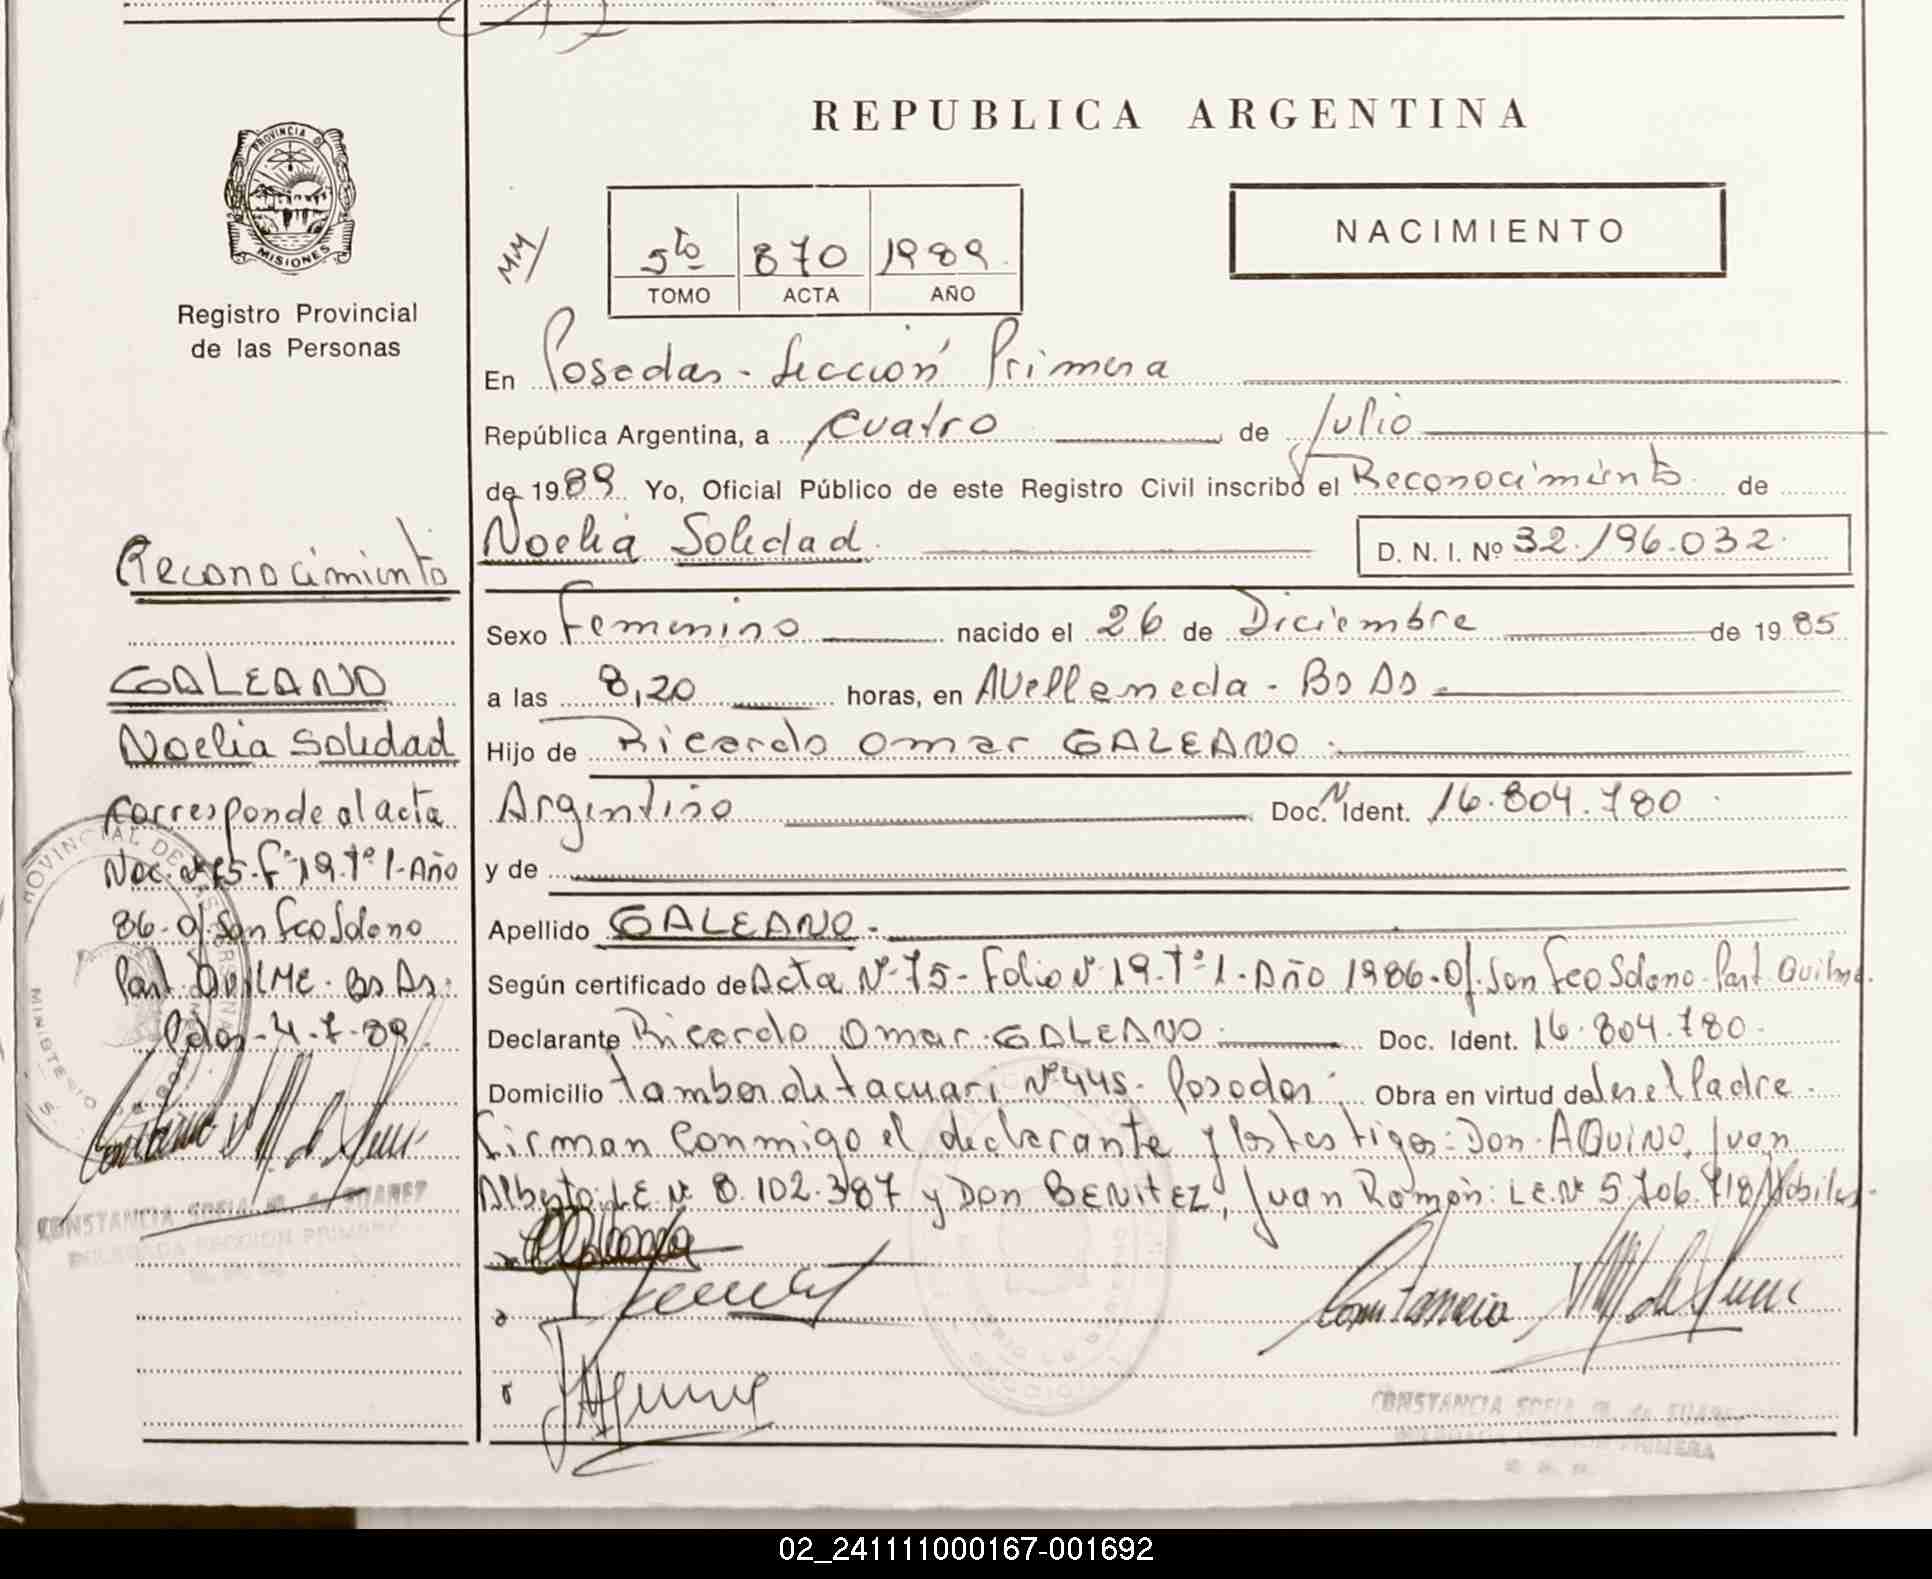 REPUBLICA ARGENTINA
PROVINCIA DE
MISIONES
Registro Provincial
de las Personas
MM
5to 870 1989
TOMO ACTA AÑO
NACIMIENTO
En Posadas - Sección Primera
República Argentina, a cuatro de Julio
de 1989 Yo, Oficial Público de este Registro Civil inscribo el Reconocimiento de
Noelia Soledad D. N. I. Nº 32.196.032
Sexo Femenino nacido el 26 de Diciembre de 1985
a las 8,20 horas, en Avellaneda - Bs As
Hijo de Ricardo Omar GALEANO
Argentino Doc. N Ident. 16.804.780
y de
Apellido GALEANO.-
Según certificado de Acta Nº 75 - Folio Nº 19 - Tº 1 - Año 1986 - Of. San Fco Solano - Part Quilme.
Declarante Ricardo Omar GALEANO Doc. Ident. 16.804.780
Domicilio tambor de tacuari Nº 445 - Posadas Obra en virtud de ser el Padre
Firman Conmigo el declarante y los testigos: Don AQUINO, Juan
Alberto: L.E. Nº 8.102.387 y Don BENITEZ, Juan Ramón: L.E. Nº 5.706.718
Reconocimiento
GALEANO
Noelia Soledad
Corresponde al acta
Nac. Nº 75 - Fº 19 Tº 1 - Año
86 - Of. San Fco Solano
Part QUILME - Bs As.
Pdas - 4-7-89
CONSTANCIA SOFIA M. de SUAREZ
DELEGADA SECCION PRIMERA
CONSTANCIA SOFIA M. de SUAREZ
DELEGADA SECCION PRIMERA
02_241111000167-001692